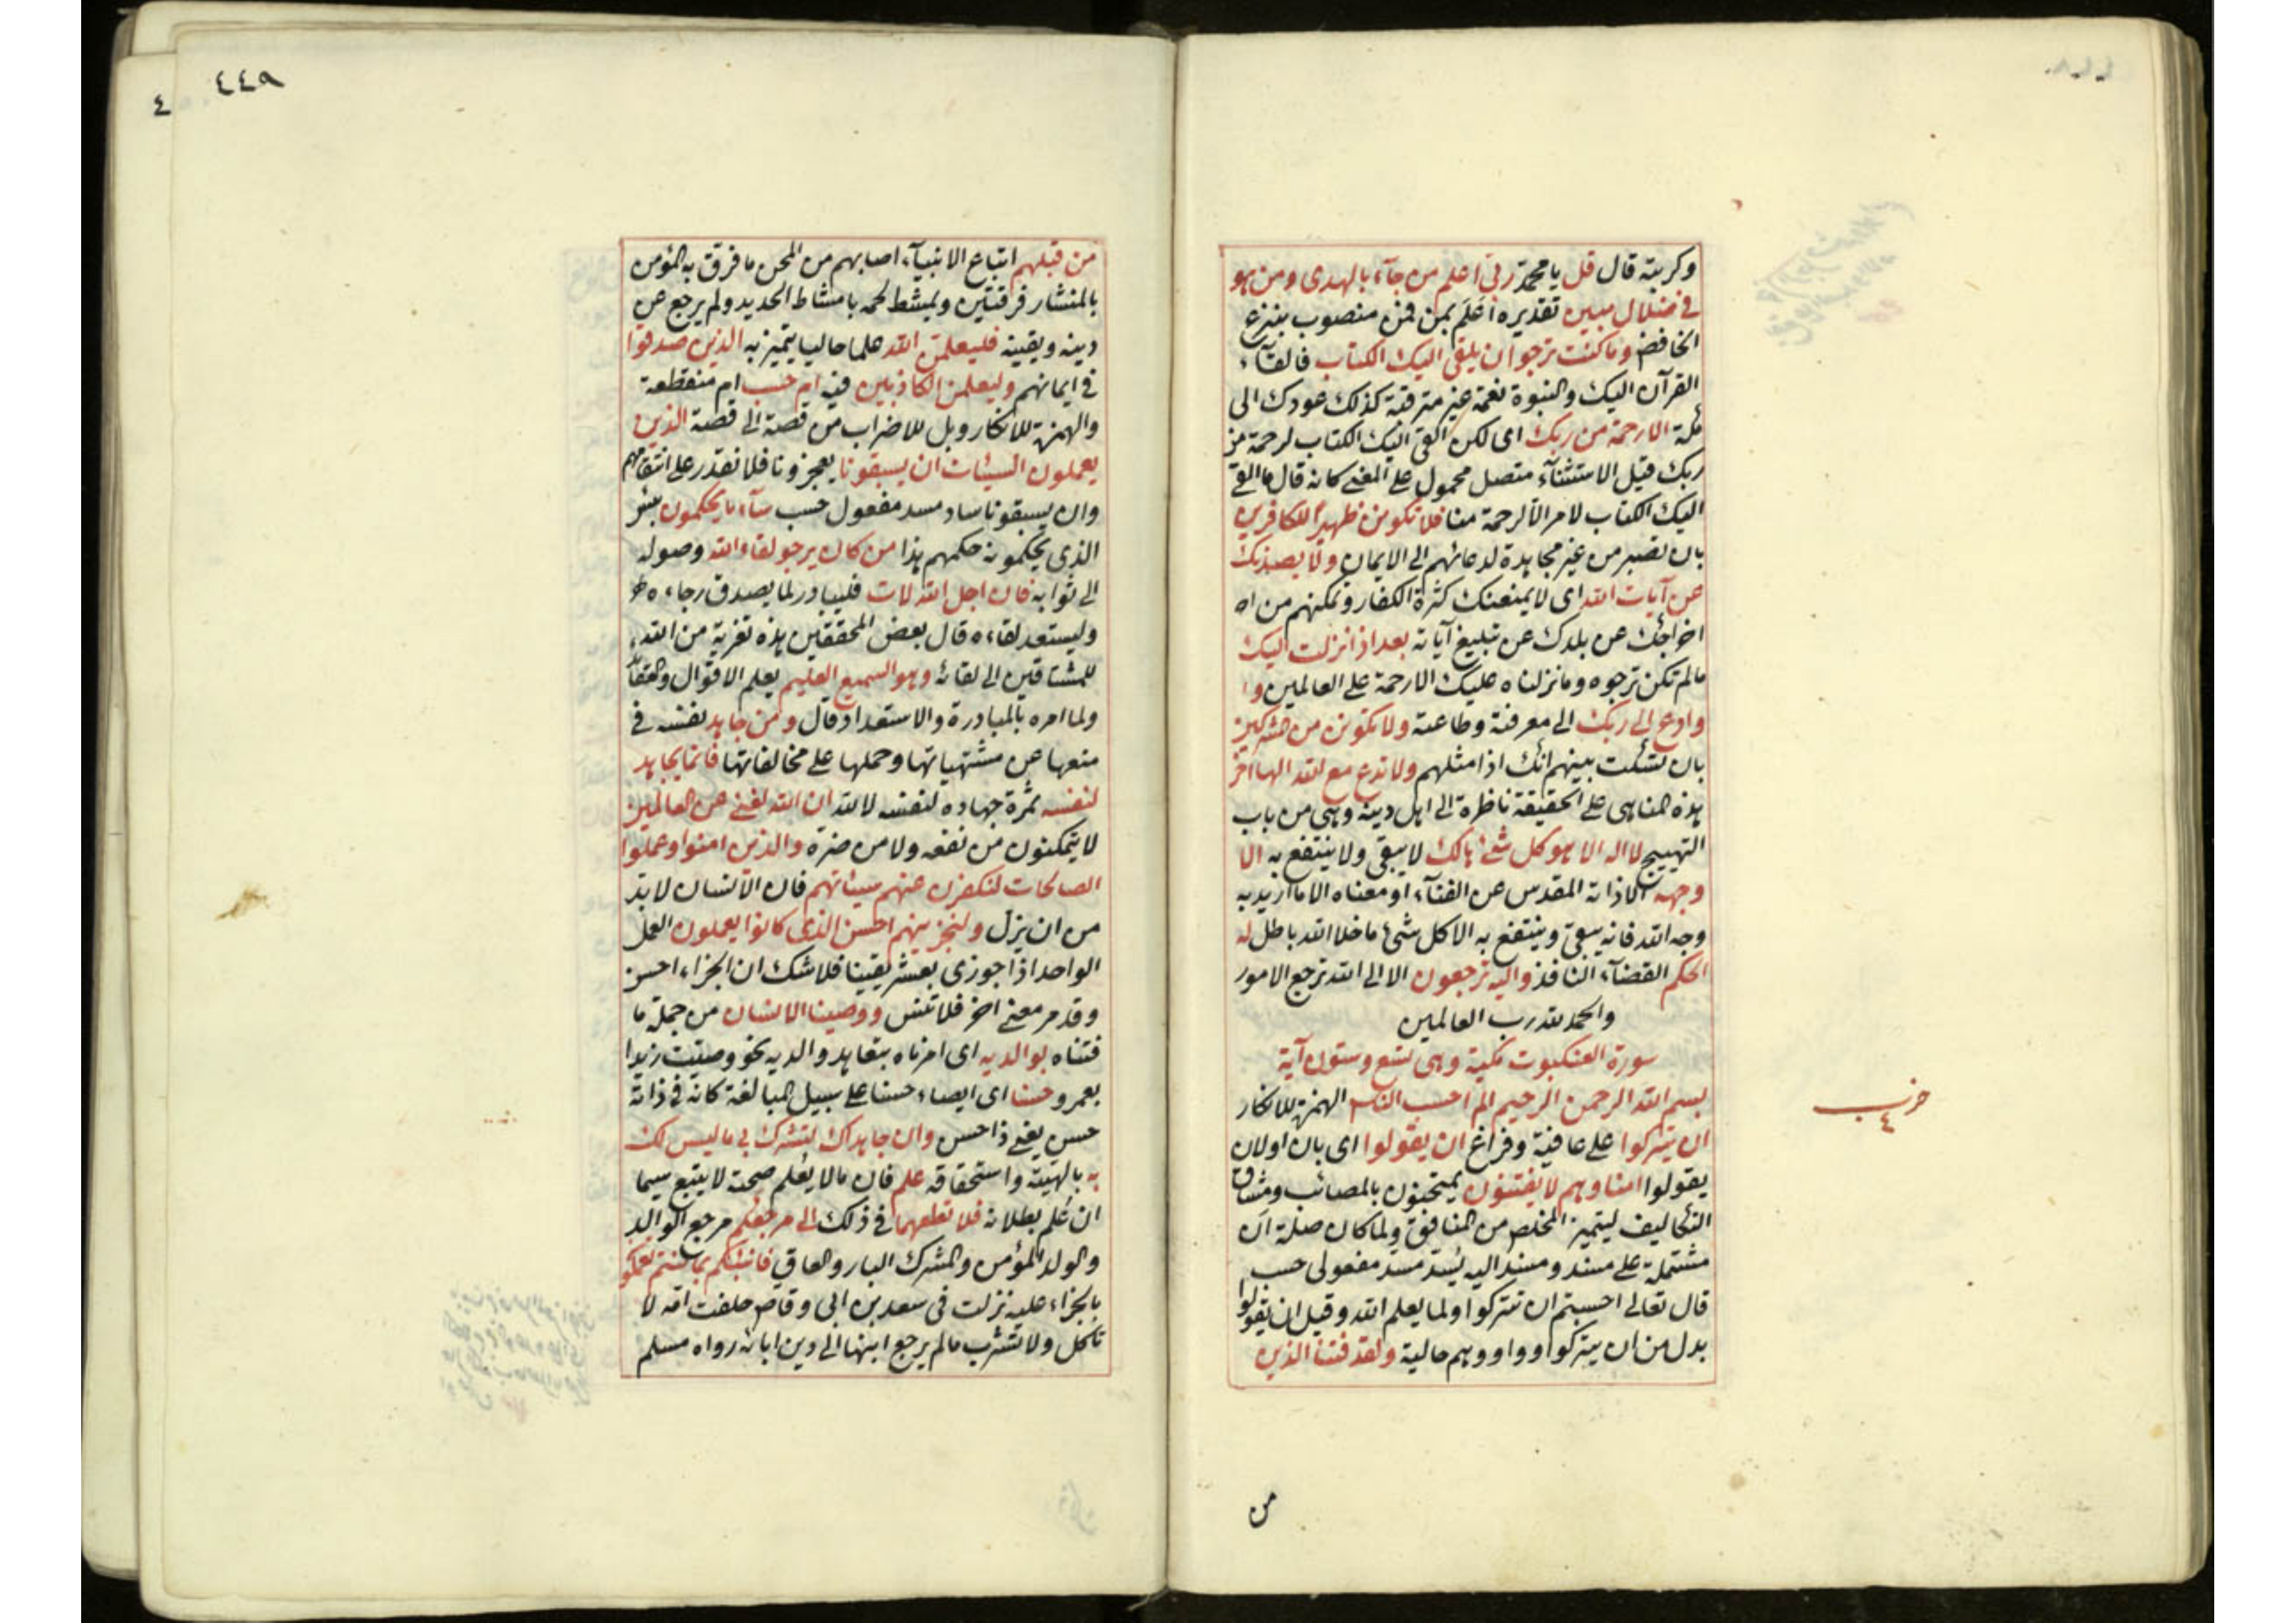 وكربته قال قل يا محمد ربي اعلم من جآء بالهدى ومن هو
في ضلال مبين تقديره اَعْلَم بمن فمن منصوب بنزع
الخافض وما كنت ترجو ان يلقى اليك الكتاب فالقآء
القرآن اليك والنبوة نعمة غير مترقبة كذلك عودك الى
مكة الا رحمة من ربك اى لكن القى اليك الكتاب لرحمة من
ربك قيل الاستثنآء متصل محمول على المعنى كانه قال ما القى
اليك الكتاب لامر الا لرحمة منا فلا تكونن ظهيرًا للكافرين
بان تصبر من غير مجاهدة لدعائهم الى الايمان ولا يصدنك
عن آيات الله اى لا يمنعنك كثرة الكفار وتمكنهم من اخ
اخراجك عن بلدك عن تبليغ آياته بعد اذ انزلت اليك
ما لم تكن ترجوه وما نزلناه عليك الا رحمة على العالمين وا
وادع الى ربك الى معرفته وطاعته ولا تكونن من المشركين
بان تسكت بينهم انك اذا مثلهم ولا تدع مع الله الها آخر
هذه المناهى على الحقيقة ناظرة الى اهل دينه وهى من باب
التهييج لا اله الا هو كل شئ هالك لا يبقى ولا ينتفع به الا
وجهه الا ذاته المقدس عن الفنآء او معناه الا ما اريد به
وجه الله فانه يبقى وينتفع به الا كل شئ ما خلا الله باطل له
الحكم القضآء النافذ واليه ترجعون الا الى الله ترجع الامور
والحمد لله رب العالمين
سورة العنكبوت مكية وهى تسع وستون آية
بسم الله الرحمن الرحيم الم احسب الناس الهمزة للانكار
ان يتركوا على عافية وفراغ ان يقولوا اى بان او لان
يقولوا امنا وهم لا يفتنون يمتحنون بالمصائب ومشاق
التكاليف ليتميز المخلص من المنافق ولما كان صلة ان
مشتملة على مسند ومسند اليه يسد مسد مفعولى حسب
قال تعالى احسبتم ان تتركوا ولما يعلم الله وقيل ان يقولوا
بدل من ان يتركوا وواو وهم حالية ولقد فتنا الذين
من
حزب
٤
٤٤٩
٤
من قبلهم اتباع الانبيآء اصابهم من المحن ما فرق به المؤمن
بالمنشار فرقتين ويمشط لحمه بامشاط الحديد ولم يرجع عن
دينه ويقينه فليعلمن الله علما حاليا يتميز به الذين صدقوا
في ايمانهم وليعلمن الكاذبين فيه ام حسب ام منقطعة
والهمزة للانكار وبل للاضراب من قصة الى قصة الذين
يعملون السيئات ان يسبقونا يعجزونا فلا نقدر على انتقامهم
وان يسبقونا ساد مسد مفعول حسب سآء ما يحكمون بئس
الذى يحكمونه حكمهم هذا من كان يرجو لقاء الله وصوله
الى ثوابه فان اجل الله لات فليبادر لما يصدق رجاءه
وليستعد لقاءه قال بعض المحققين هذه تعزية من الله
للمشتاقين الى لقائه وهو السميع العليم يعلم الاقوال والعقائد
ولما امره بالمبادرة والاستعداد قال ومن جاهد نفسه في
منعها عن مشتهياتها وحملها على مخالفاتها فانما يجاهد
لنفسه ثمرة جهاده لنفسه لا لله ان الله لغنى عن العالمين
لا يتمكنون من نفعه ولا من ضره والذين امنوا وعملوا
الصالحات لنكفرن عنهم سيئاتهم فان الانسان لا بد
من ان يزل ولنجزينهم احسن الذى كانوا يعملون العمل
الواحد اذا جوزى بعشر يقينا فلا شك ان الجزاء احسن
وقد مر معنى اخر فلا تنس ووصينا الانسان من جملة ما
فتناه بوالديه اى امرناه بتعاهد والديه نحو وصيت زيدا
بعمرو حسنا اى ايصاء حسنا على سبيل المبالغة كانه في ذاته
حسن يعنى ذا حسن وان جاهداك لتشرك بى ما ليس لك
به بالهيته واستحقاقه علم فان ما لا يُعْلم صحته لا يتبع سيما
ان عُلم بطلانه فلا تطعهما في ذلك الى مرجعكم مرجع الوالد
والولد المؤمن والمشرك البار والعاق فانبئكم بما كنتم تعملون
بالجزاء عليه نزلت فى سعد بن ابى وقاص حلفت امه لا
تأكل ولا تشرب ما لم يرجع ابنها الى دين ابائه رواه مسلم